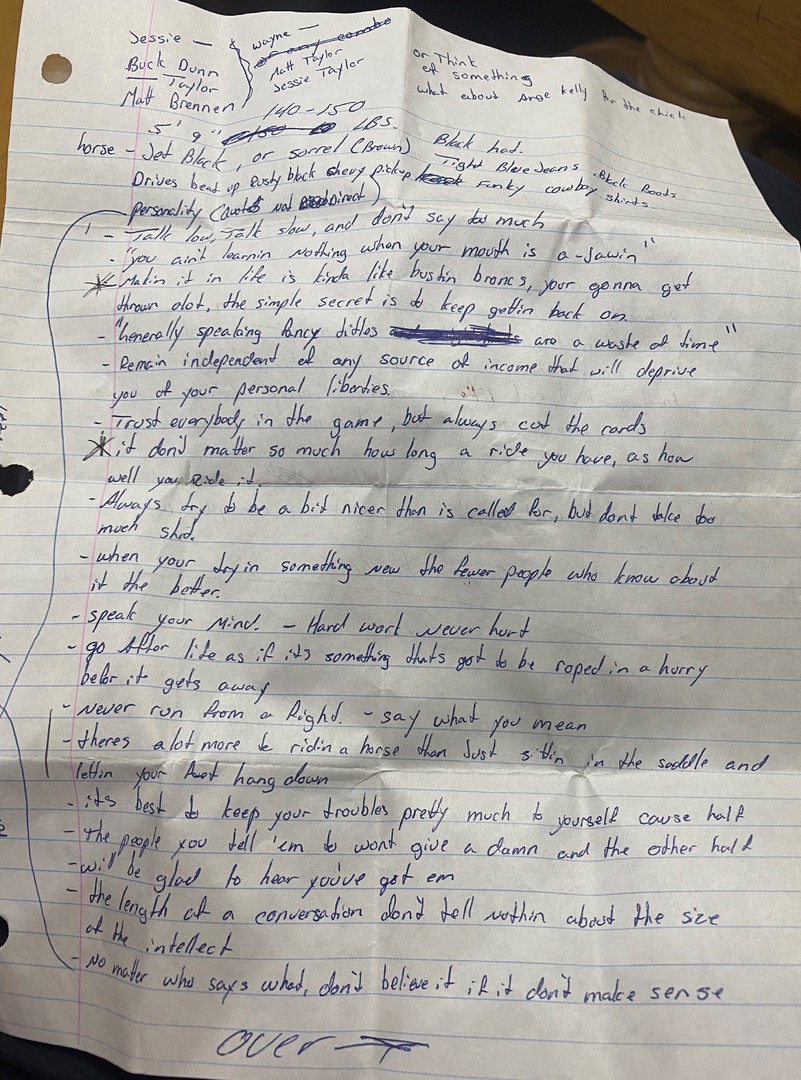 Jessie — wayne —
or any combo
Buck Dunn Matt Taylor
— Taylor Jessie Taylor
Matt Brennen
or Think
of something
what about Ange Kelly for the chick
5' 9" 140-150 LBS.
horse - Jet Black, or sorrel (Brown) Black hat.
Tight Blue Jeans. Black Boots
Drives beat up Rusty black chevy pickup Funky cowboy shirts.
personality (quotes not Direct)
- Talk low, Talk slow, and don't say too much
- "you ain't learnin nothing when your mouth is a-Jawin"
- Makin it in life is kinda like bustin broncs, your gonna get
thrown alot, the simple secret is to keep gettin back on.
- "Generally speaking fancy titles are a waste of time"
- Remain independent of any source of income that will deprive
you of your personal liberties.
- Trust everybody in the game, but always cut the cards
it dont matter so much how long a ride you have, as how
well you Ride it.
- Always try to be a bit nicer than is called for, but dont take too
much shit.
- when your tryin something new the fewer people who know about
it the better.
- speak your mind. - Hard work never hurt
- go After life as if its something thats got to be roped in a hurry
befor it gets away
- Never run from a fight. - say what you mean
- theres alot more to ridin a horse than Just sittin in the saddle and
lettin your feet hang down
- its best to keep your troubles pretty much to yourself cause half
- The people you tell 'em to wont give a damn and the other half
- will be glad to hear you've got em
- the length of a conversation don't tell nothin about the size
of the intellect
- No matter who says what, don't believe it if it don't make sense
over